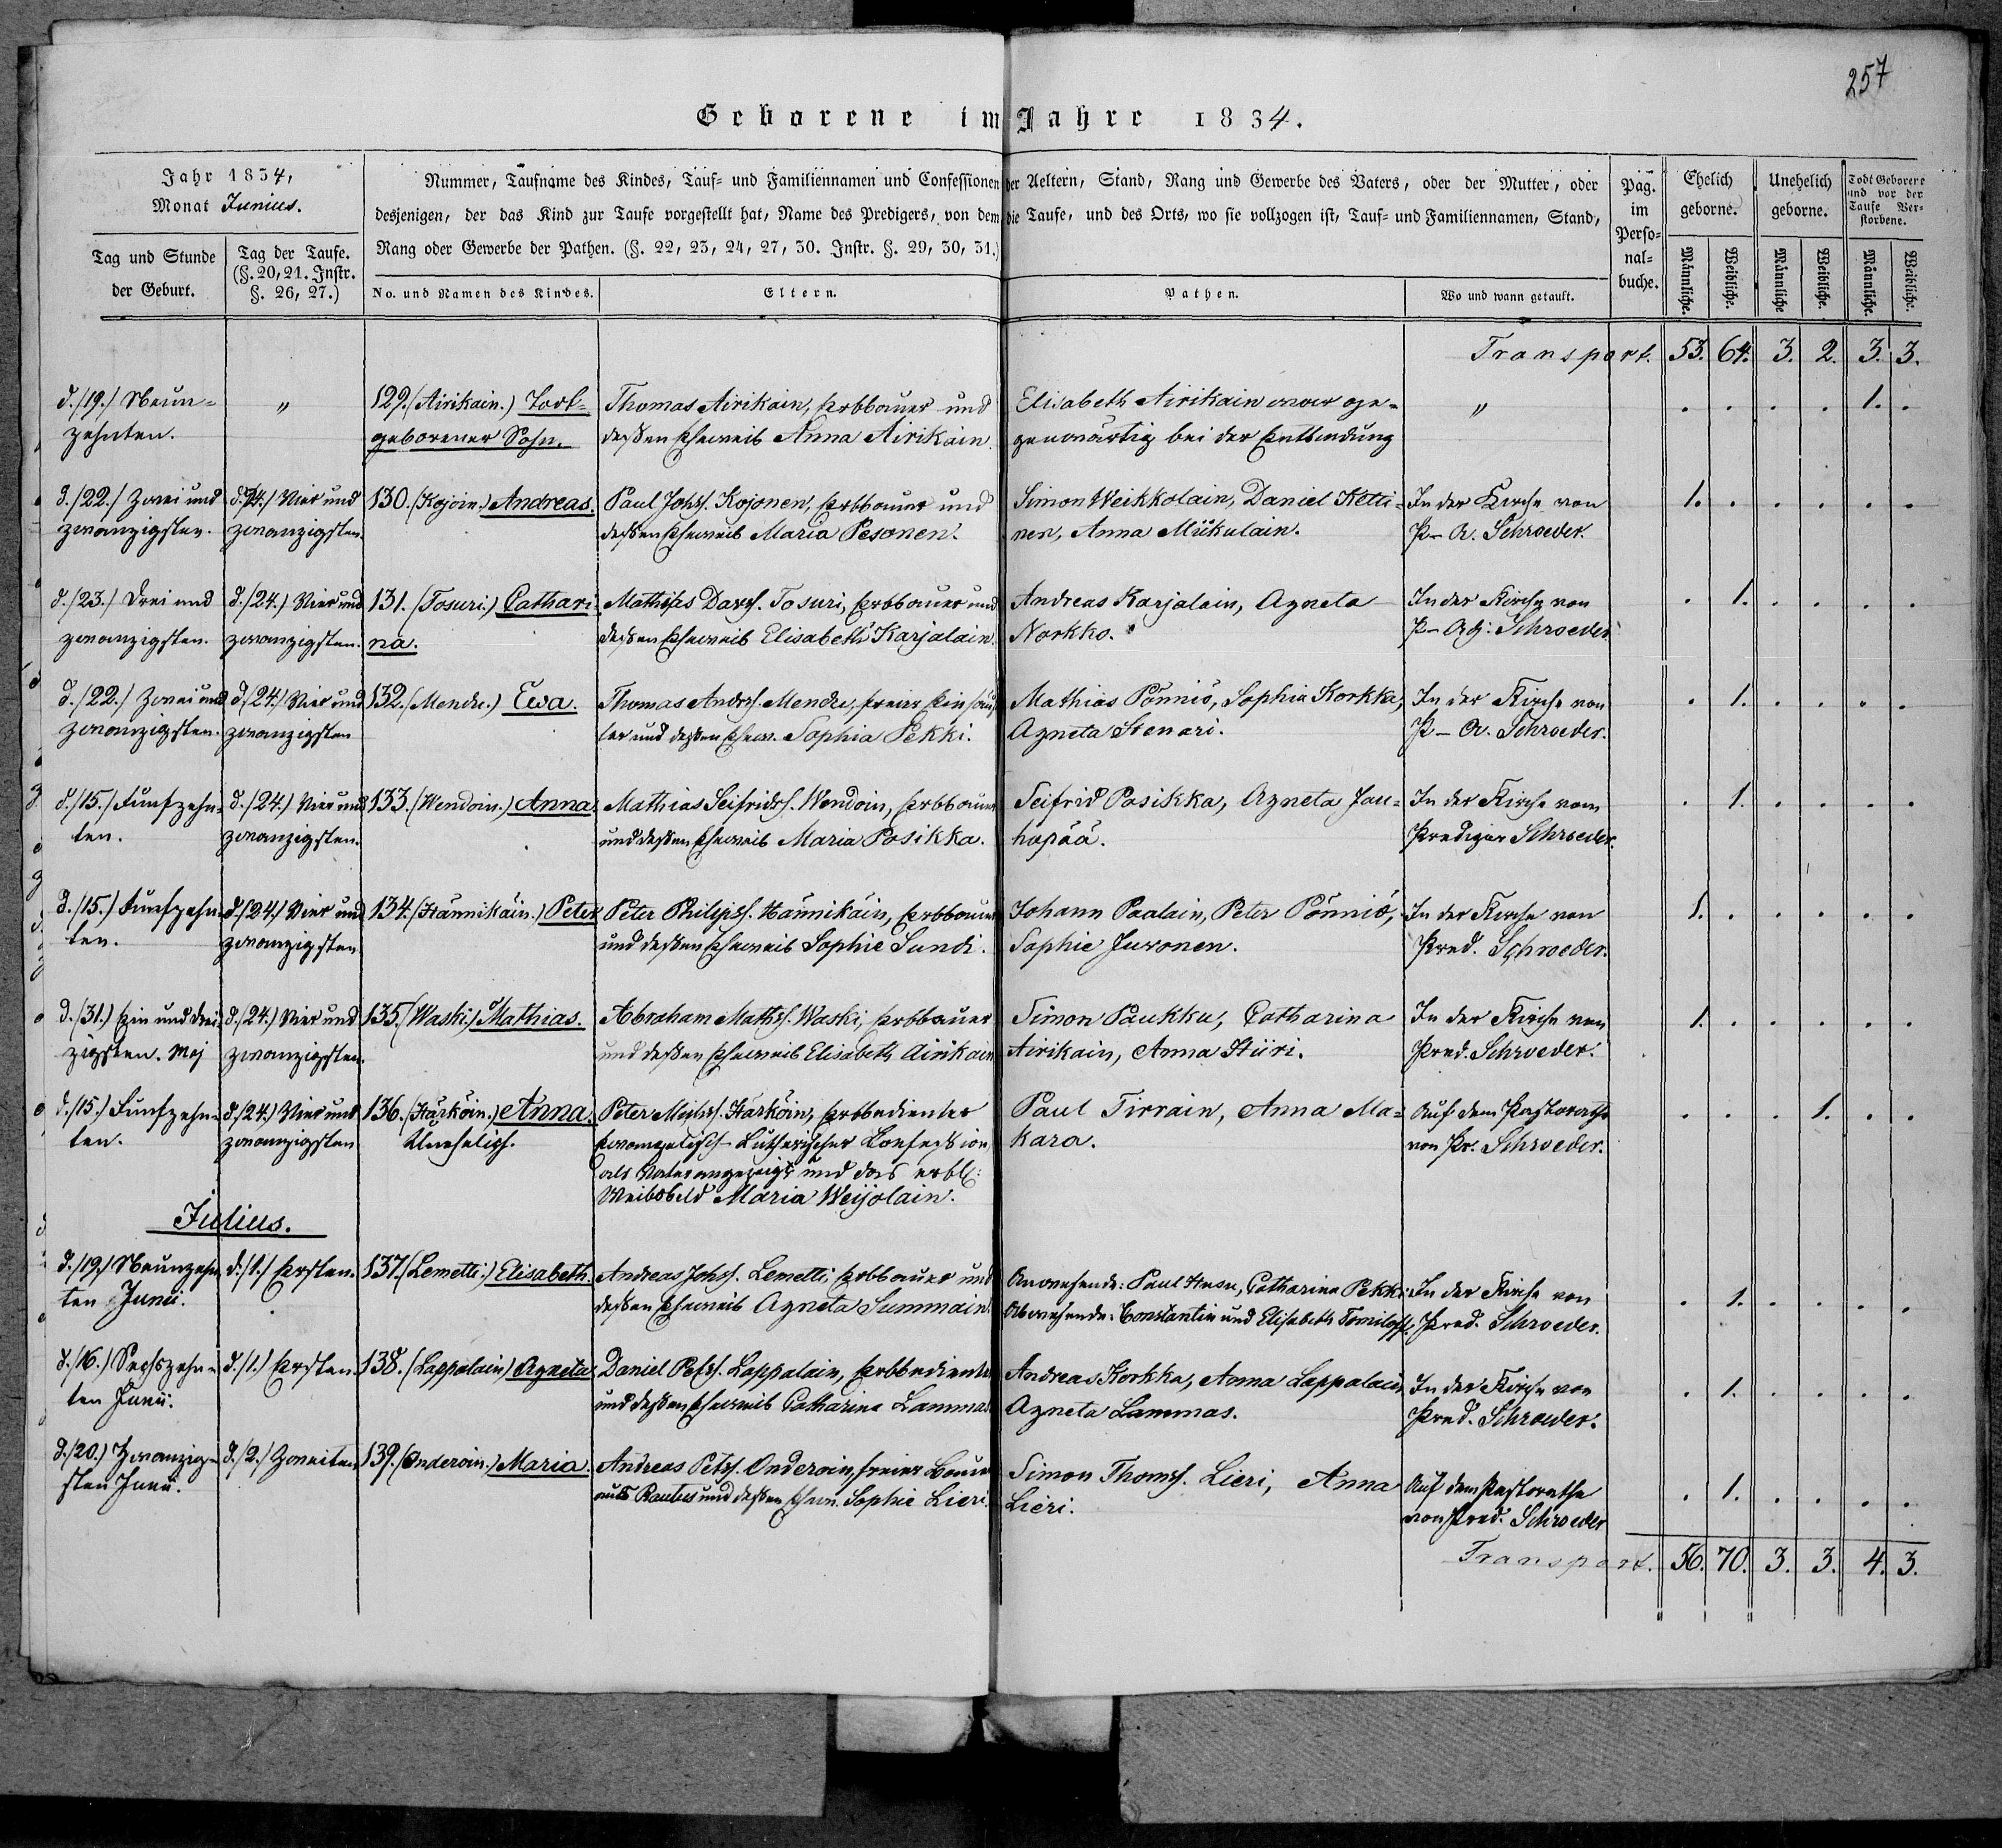 257
Geborene im Jahre 1834.
Jahr 1834,
Monat Junius.
Tag und Stunde
der Geburt.
Tag der Taufe.
(§. 20, 21. Instr.
§. 26, 27.)
Nummer, Taufname des Kindes, Tauf- und Familiennamen und Confessionen der Aeltern, Stand, Rang und Gewerbe des Vaters, oder der Mutter, oder
desjenigen, der das Kind zur Taufe vorgestellt hat, Name des Predigers, von dem die Taufe, und des Orts, wo sie vollzogen ist, Tauf- und Familiennamen, Stand,
Rang oder Gewerbe der Pathen. (§. 22, 23, 24, 27, 30. Instr. §. 29, 30, 31.)
No. und Namen des Kindes.
Eltern.
Pathen.
Wo und wann getauft.
Pag.
im
Perso-
nal-
buche.
Ehelich
geborne.
Unehelich
geborne.
Todt Geborene
und vor der
Taufe Ver-
storbene.
Männliche.
Weibliche.
Männliche
Weibliche.
Männliche.
Weibliche.
Transport. 53. 64. 3. 2. 3. 3.
d./19./ Neun-
zehnten.
"
129. (Airikain.) Todt-
geborener Sohn.
Thomas Airikain, Erbbauer und
deßen Eheweib Anna Airikain.
Elisabeth Airikain war ge-
genwärtig bei der Entbindung
"
. . . . 1. .
d./22./ Zwei und
zwanzigsten.
d./24./ Vier und
zwanzigsten.
130. (Kojoin.) Andreas.
Paul Johs. Kojonen, Erbbauer und
deßen Eheweib Maria Pesonen.
Simon Weikkolain, Daniel Kotti-
nen, Anna Mükulain.
In der Kirche von
P- A. Schroeder.
1. . . . . .
d./23./ Drei und
zwanzigsten.
d./24.) Vier und
zwanzigsten.
131. (Tosuri.) Cathari
na.
Mathias Davs. Tosuri, Erbbauer und
deßen Eheweib Elisabeth Karjalain.
Andreas Karjalain, Agneta
Norkko.
In der Kirche von
P- Adj: Schroeder
. 1. . . . .
d./22./ Zwei und
zwanzigsten.
d./24./ Vier und
zwanzigsten
132. (Mendu.) Ewa.
Thomas Andrs. Mendu, freier Einhäus-
ler und deßen Ehew. Sophia Pekki.
Mathias Pönniö, Sophia Korkka,
Agneta Stenari.
In der Kirche von
P- A. Schroeder.
. 1. . . . .
d./15./ Fünfzehn-
ten.
d./24.) Vier und
zwanzigsten.
133. (Wendoin.) Anna.
Mathias Seifrids. Wendoin, Erbbauer
und deßen Eheweib Maria Posikka.
Seifrid Posikka, Agneta Jau-
hopää.
In der Kirche vom
Prediger Schroeder.
. 1. . . . .
d./15.) Fünfzehn-
ten.
d./24./ Vier und
zwanzigsten
134. (Hännikäin.) Peter
Peter Philips. Hännikäin, Erbbauer
und deßen Eheweib Sophie Sundi.
Johann Paalain, Peter Pönniö,
Sophie Juwonen.
In der Kirche von
Pred. Schroeder.
1. . . . . .
d./31.) Ein und drei
zigsten. Maj
d./24.) Vier und
zwanzigsten.
135. (Waski.) Mathias.
Abraham Maths. Waski, Erbbauer
und deßen Eheweib Elisabeth Airikain
Simon Paukku, Catharina
Airikain, Anna Hüri.
In der Kirche von
Pred. Schroeder.
1. . . . . .
d./15.) Fünfzehn-
ten.
d./24.) Vier und
zwanzigsten
136. (Härköin.) Anna.
Unehelich.
Peter Härköin, Erbbedienter
Evangelisch Lutherischer Confeßion
als Vater angezeigt und das erbl:
Weibsbild Maria Weijolain.
Paul Tirrain, Anna Ma-
kara.
Auf dem Pastorathe
von Pr. Schroeder.
. . . 1. . .
Julius.
d./19./ Neunzehn
ten Junii.
d./1./ Ersten.
137. (Lemetti.) Elisabeth.
Andreas Johs. Lemetti, Erbbauer und
deßen Eheweib Agneta Summain.
Anwesende: Paul Husu, Catharina Pekki
Abwesende: Constantin und Elisabeth Tomiloff.
In der Kirche von
Pred. Schroeder.
. 1. . . . .
d./16.) Sechszehn-
ten Junii.
d./1./ Ersten.
138. (Lappalain) Agneta
Daniel Pets. Lappalain, Erbbedienter
und deßen Eheweib Catharina Lammas
Andreas Korkka, Anna Lappalain,
Agneta Lammas.
In der Kirche von
Pred. Schroeder.
. 1. . . . .
d./20.) Zwanzig-
sten Junii.
d./2./ Zweiten
139. (Onderoin.) Maria.
Andreas Pets. Onderoin, freier Bauer
aus Rautus und deßen Ehew. Sophie Lieri.
Simon Thoms. Lieri, Anna
Lieri.
Auf dem Pastorathe
von Pred. Schroeder
. 1. . . . .
Transport. 56. 70. 3. 3. 4. 3.